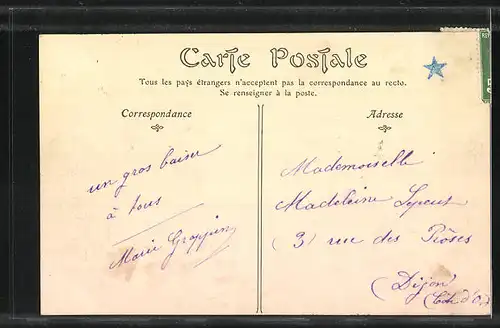 Carte Postale
Tous les pays étrangers n'acceptent pas la correspondance au recto.
Se renseigner à la poste.
Correspondance
un gros baiser
à tous
Marie
Adresse
Mademoiselle
Madeleine
(3) rue des Rôses
(Dijon
(Côte d'Or)